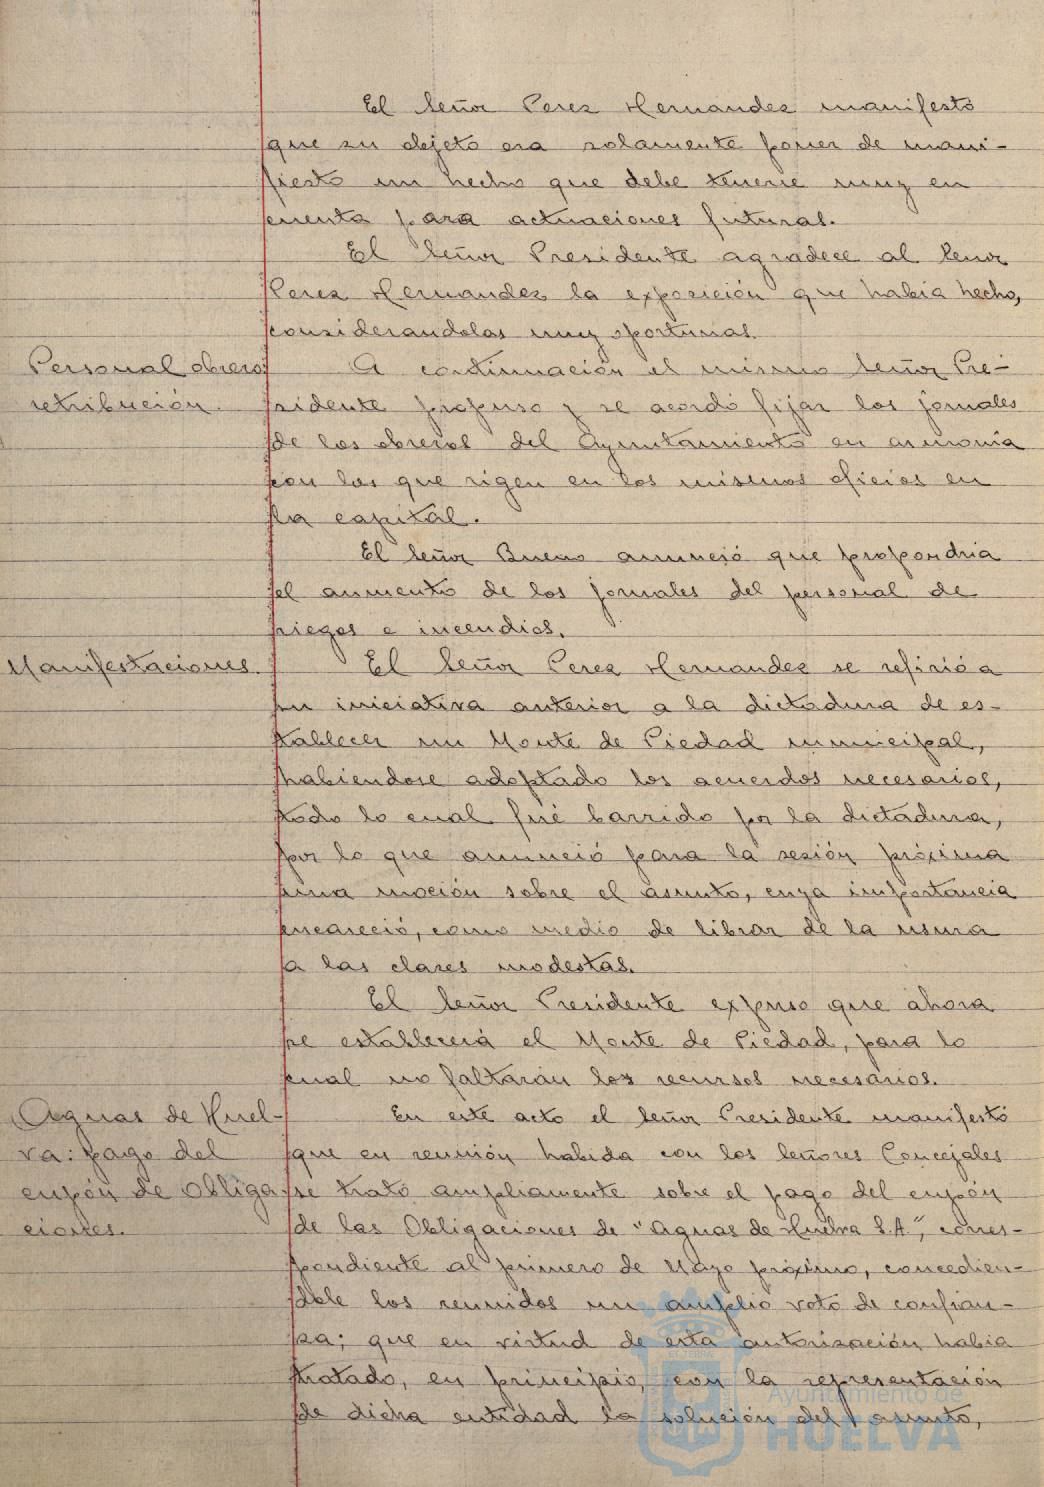 El Señor Perez Hernandez manifestó
que su objeto era solamente poner de mani-
fiesto un hecho que debe tenerse muy en
cuenta para actuaciones futuras.
El Señor Presidente agradece al Señor
Perez Hernandez la exposición que habia hecho,
considerandolas muy oportunas.
Personal obrero:
retribución.
A continuación el mismo Señor Pre-
sidente propuso y se acordó fijar los jornales
de los obreros del Ayuntamiento en armonía
con los que rigen en los mismos oficios en
la capital.
El Señor Bueno anunció que propondria
el aumento de los jornales del personal de
riegos e incendios.
Manifestaciones.
El Señor Perez Hernandez se refirió a
su iniciativa anterior a la dictadura de es-
tablecer un Monte de Piedad municipal,
habiendose adoptado los acuerdos necesarios,
todo lo cual fué barrido por la dictadura,
por lo que anunció para la sesión próxima
una moción sobre el asunto, cuya importancia
encareció, como medio de librar de la usura
a las clases modestas.
El Señor Presidente expuso que ahora
se establecerá el Monte de Piedad, para lo
cual no faltarán los recursos necesarios.
Aguas de Huel-
va: pago del
cupón de Obliga-
ciones.
En este acto el Señor Presidente manifestó
que en reunión habida con los Señores Concejales
se trató ampliamente sobre el pago del cupón
de las Obligaciones de "Aguas de Huelva S.A.", corres-
pondiente al primero de Mayo próximo, concedien-
dole los reunidos un amplio voto de confian-
za; que en virtud de esta autorización habia
tratado, en principio, con la representación
de dicha entidad la solución del asunto,
Ayuntamiento de
HUELVA